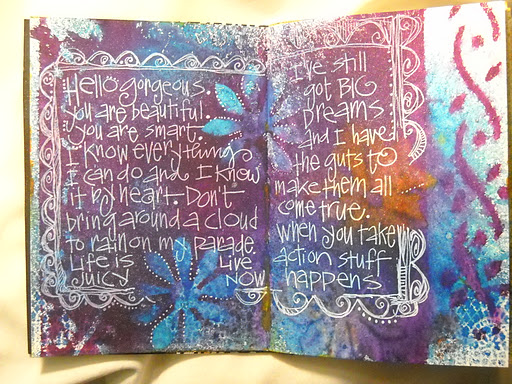 Hello gorgeous.
You are beautiful.
You are smart.
I know everything
I can do and I know
it by heart. Don't
bring around a cloud
to rain on my parade.
Life is Live
juicy NOW
I've still
got BIG
Dreams
and I have
the guts to
make them all
come true.
When you take
action stuff
happens